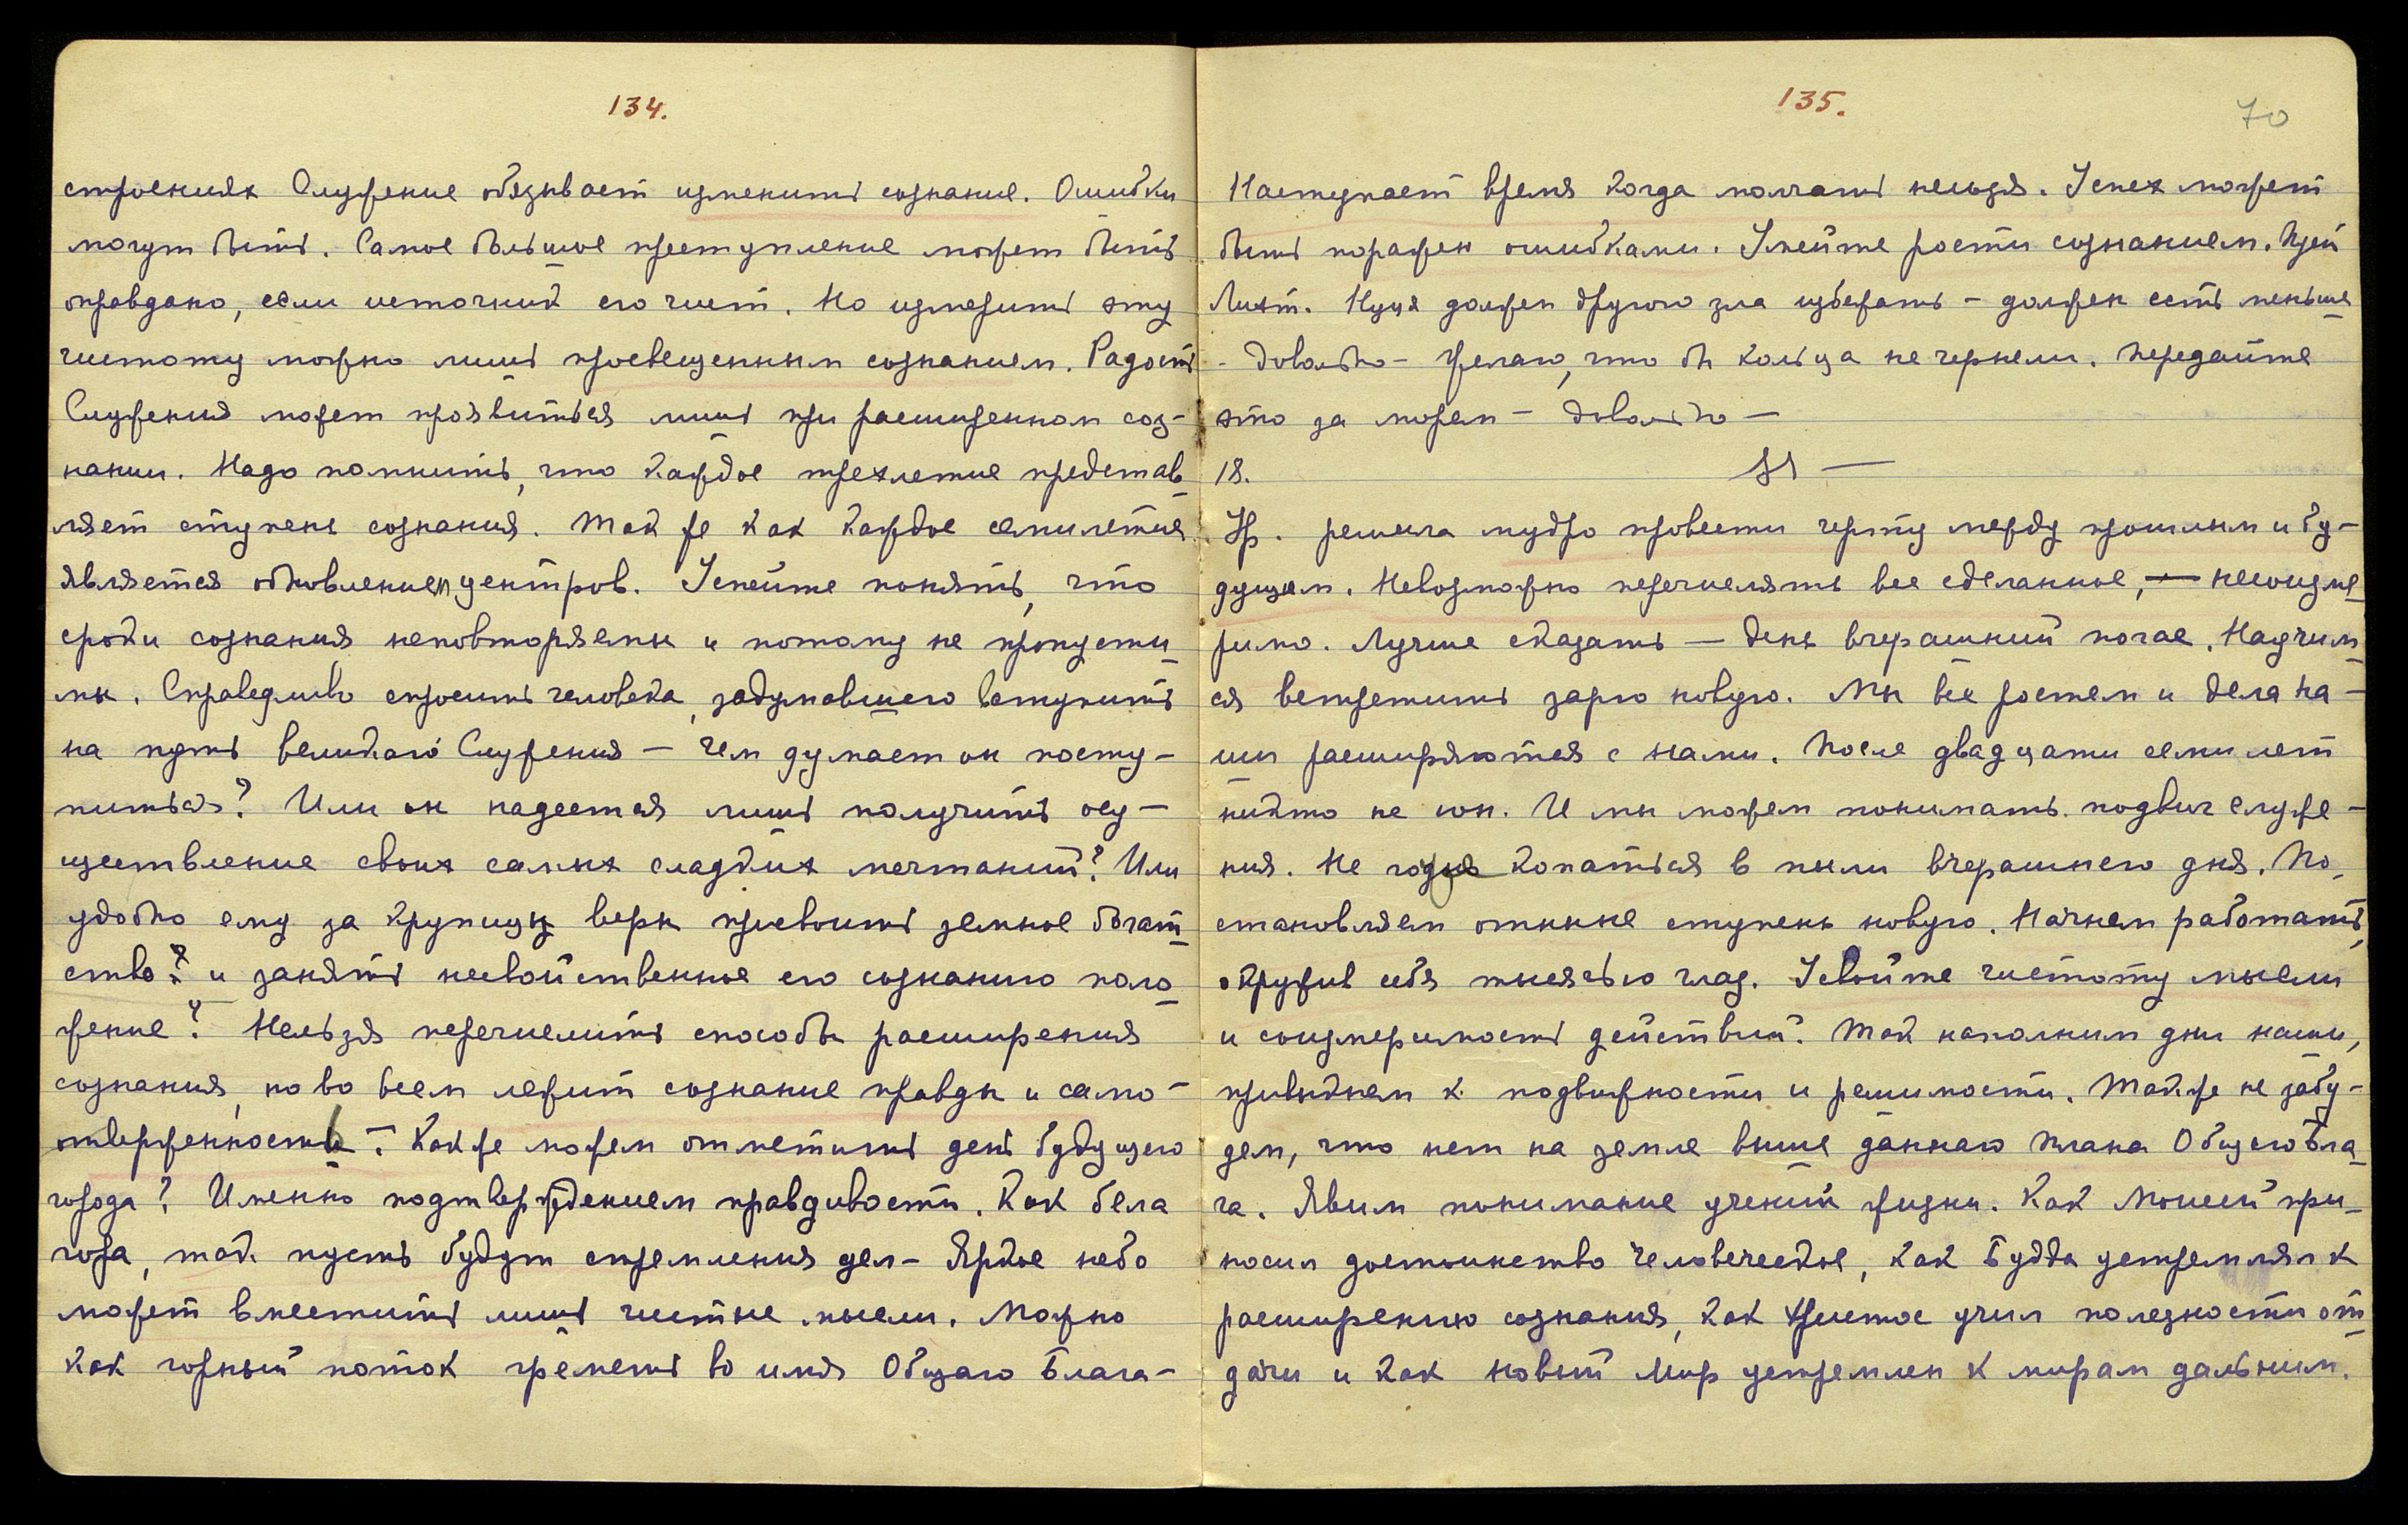 134.
строениях Служение обязывает изменить сознание. Ошибки
могут быть. Самое большое преступление может быть
оправдано, если источник его чист. Но измерить эту
чистоту можно лишь просвещенным сознанием. Радость
Служения может проявиться лишь при расширенном соз-
нании. Надо помнить, что каждое трехлетие представ-
ляет ступень сознания. Так же как каждое семилетие
является обновлением центров. Умейте понять, что
сроки сознания неповторяемы и потому не пропусти-
мы. Справедливо спросить человека, задумавшего вступить
на путь великаго Служения — чем думает он посту-
питься? Или он надеется лишь получить осу-
ществление своих самых сладких мечтаний? Или
удобно ему за крупицу веры присвоить земное богат-
ство? и занять несвойственное его сознанию поло-
жение? Нельзя перечислить способы расширения
сознания, но во всем лежит сознание правды и само-
отверженности. Как же можем отметить день будущего
города? Именно подтверждением правдивости. Как бела
гора, так пусть будут стремления дел - Яркое небо
может вместить лишь чистые мысли. Можно
как горный поток греметь во имя Общаго Блага -
135.
70
Наступает время когда молчать нельзя. Успех может
быть поражен ошибками. Умейте расти сознанием. Идет
Лист. Нуця должен другого зла избегать - должен есть меньше
- довольно - Желаю, что бы кольца не чернели. Передайте
это за морем - довольно -
18.
Ур. решила мудро провести черту между прошлым и бу-
дущем. Невозможно перечислять все сделанное, — несоизме-
римо. Лучше сказать — день вчерашний погас. Научим-
ся встретить зарю новую. Мы все растем и дела на-
ши расширяются с нами. После двадцати семи лет
никто не юн. И мы можем понимать подвиг служе-
ния. Не годно копаться в пыли вчерашнего дня. По-
становляем отныне ступень новую. Начнем работать,
окружив себя тысячью глаз. Усвойте чистоту мысли
и соизмеримость действий. Так наполним дни наши,
привыкнем к подвижности и решимости. Также не забу-
дем, что нет на земле выше даннаго плана Общего Бла-
га. Явим понимание учений жизни. Как Моисей при-
носил достоинство человеческое, как Будда устремлял к
расширению сознания, как Христос учил полезности от-
дачи и как новый Мир устремлен к мирам дальним.